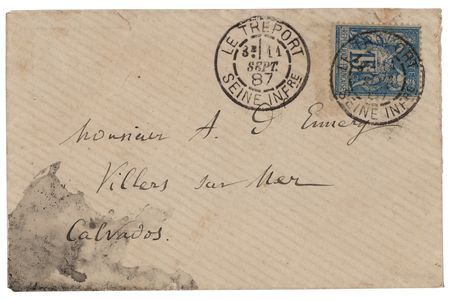 LE TREPORT
3E 11
SEPT.
87
SEINE INFRE
15
LE TREPORT
SEINE INFRE
Monsieur A. D'Ennery
Villers sur Mer
Calvados.